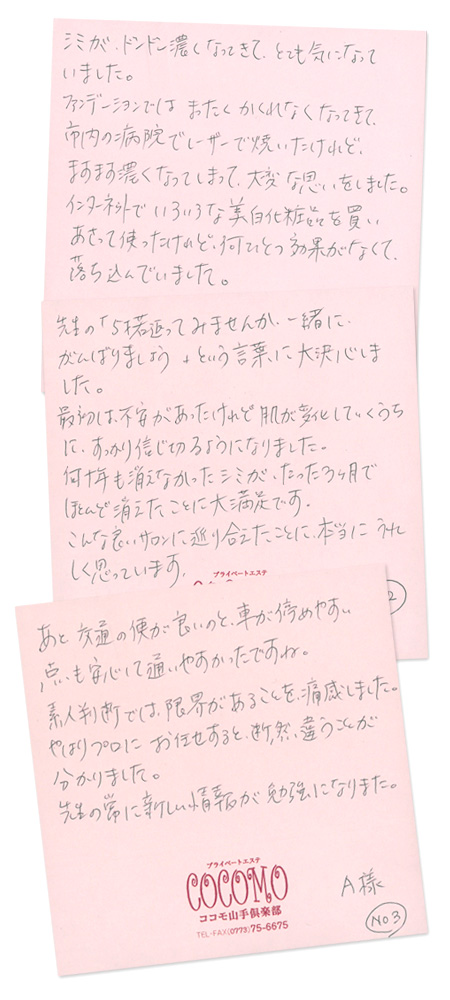 シミが、ドンドン濃くなってきて、とても気になって
いました。
ファンデーションでは またく かくれなくなってきて、
市内の病院でレーザーで焼いたけれど、
ますます濃くなってしまって、大変な思いをしました。
インターネットでいろいろな美白化粧品を買い
あさって使ったけれど、何ひとつ効果がなくて、
落ち込んでいました。
先生の「5才若返ってみませんか、一緒に
がんばりましょう」という言葉に大決心しま
した。
最初は、不安があったけれど肌が変化していくうち
に、すっかり信じ切るようになりました。
何十年も消えなかったシミが、たった3ヶ月で
ほとんど消えたことに大満足です。
こんな良いサロンに巡り合えたことに、本当にうれ
しく思っています。
プライベートエステ
2
あと 交通の便が良いのと、車が停めやすい
点も安心して通いやすかったですね。
素人判断では、限界があることを、痛感しました。
やはりプロに お任せすると、断然、違うことが
分かりました。
先生の常に新しい情報が勉強になりました。
プライベートエステ
COCOMO
ココモ山手倶楽部
TEL・FAX(0773)75-6675
A様
No3